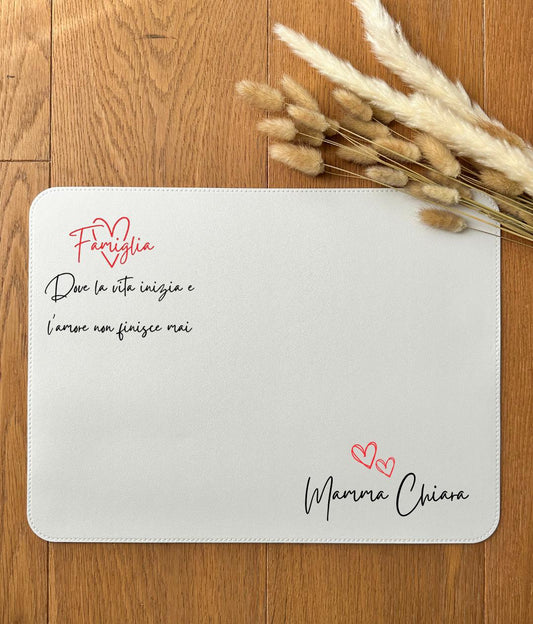 Famiglia
Dove la vita inizia e
l'amore non finisce mai
Mamma Chiara